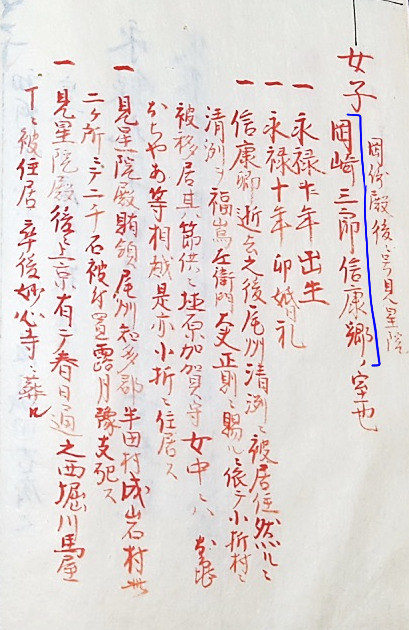 岡崎殿後ニ号見星院
女子 岡崎三郎信康郷 室也
一 永禄 年出生
一 永禄十年卯婚礼
一 信康卿逝去之後尾州清洌ニ被居住然ルニ
清洌ヲ福嶌左衛門大夫正則ニ賜ルニ依テ小折村ニ
被移居其節供ニ埴原加賀守女中ニハ
おちやあ等相越是亦小折ニ住居ス
一 見星院殿賄領尾州知多郡半田村成岩村此
二ヶ所ニテ二千石被付置露月豫支死ス
一 見星院殿後ニ上京有テ春日通之西堀川馬屋
丁ニ被住居卒後妙心寺ニ葬ル